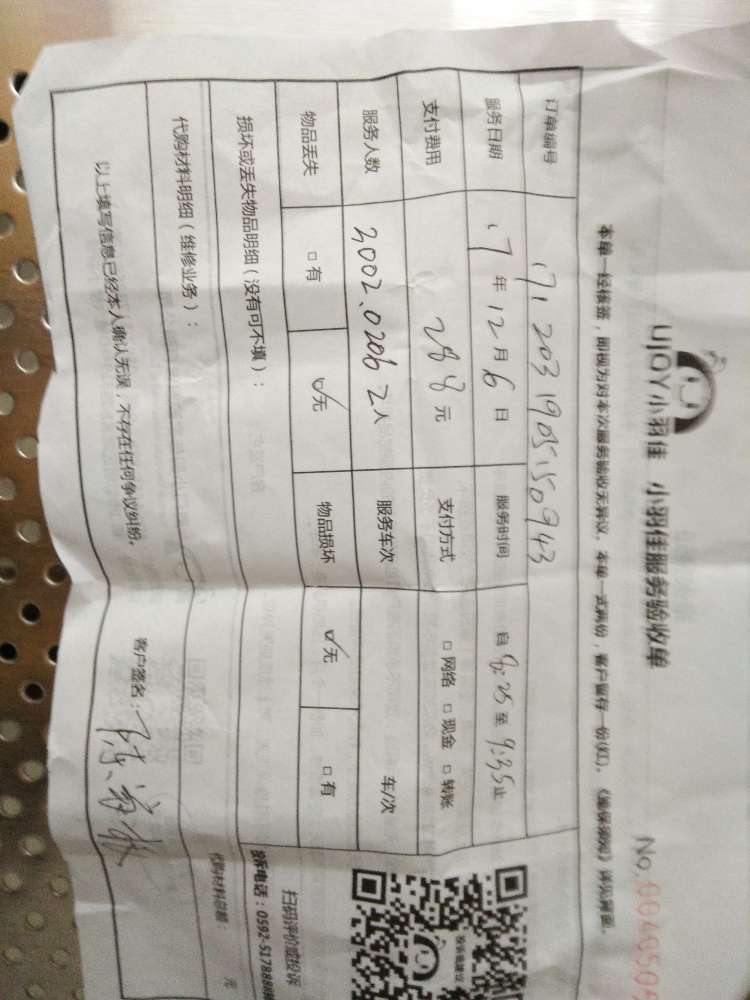 UJOY小羽佳 小羽佳服务验收单
No.
本单一经核签，即视为对本次服务验收无异议。本单一式两份，客户留存一份(红)。
订单编号 1712031905150943
服务日期 17年12月6日 服务时间 自8:25至9:35止
支付费用 288元 支付方式 □网络 □现金 □转账
服务人数 3002、0206 2人 服务车次 车/次
物品丢失 □有 ☑无 物品损坏 ☑无 □有
损坏或丢失物品明细（没有可不填）：
扫码评价或投诉
投诉电话：0592-5178888
代购材料明细（维修业务）：
代购材料总额： 元
以上填写信息已经本人确认无误，不存在任何争议纠纷。
客户签名：